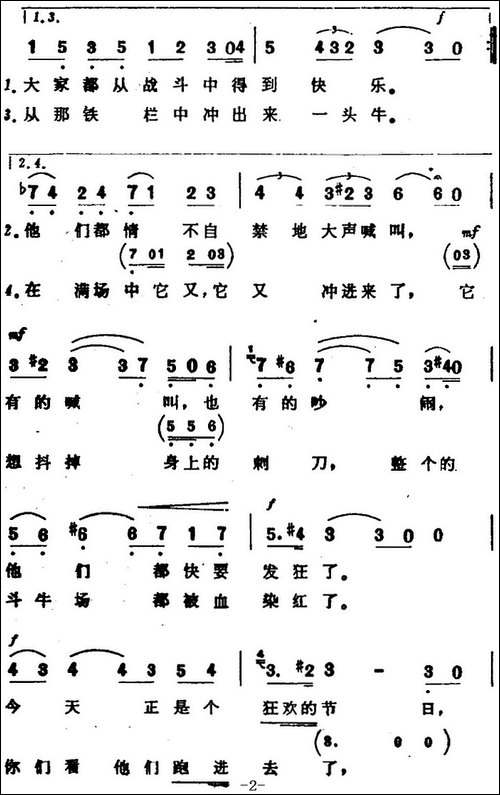 1.3. f
1 5 3 5 1 2 3 04 5 432 3 3 0
1.大家都从战斗中得到快乐。
3.从那铁栏中冲出来一头牛。
2.4.
♭7 4 2 4 7 1 2 3 4 4 3 #2 3 6 6 0
2.他们都情不自禁地大声喊叫, mf
(7 01 2 03) (03)
4.在满场中它又,它又冲进来了,它
mf
3 #2 3 3 7 5 0 6 7 #6 7 7 5 3 #4 0
有的喊叫,也有的吵闹,
(5 5 6)
想抖掉身上的刺刀,整个的
f
5 6 #6 6 7 1 7 5. #4 3 3 0 0 0
他们都快要发狂了。
斗牛场都被血染红了。
f
4 3 4 4 3 5 4 3. #2 3 - 3 0
今天正是个狂欢的节日,
(3. 0 0)
你们看他们跑进去了,
-2-